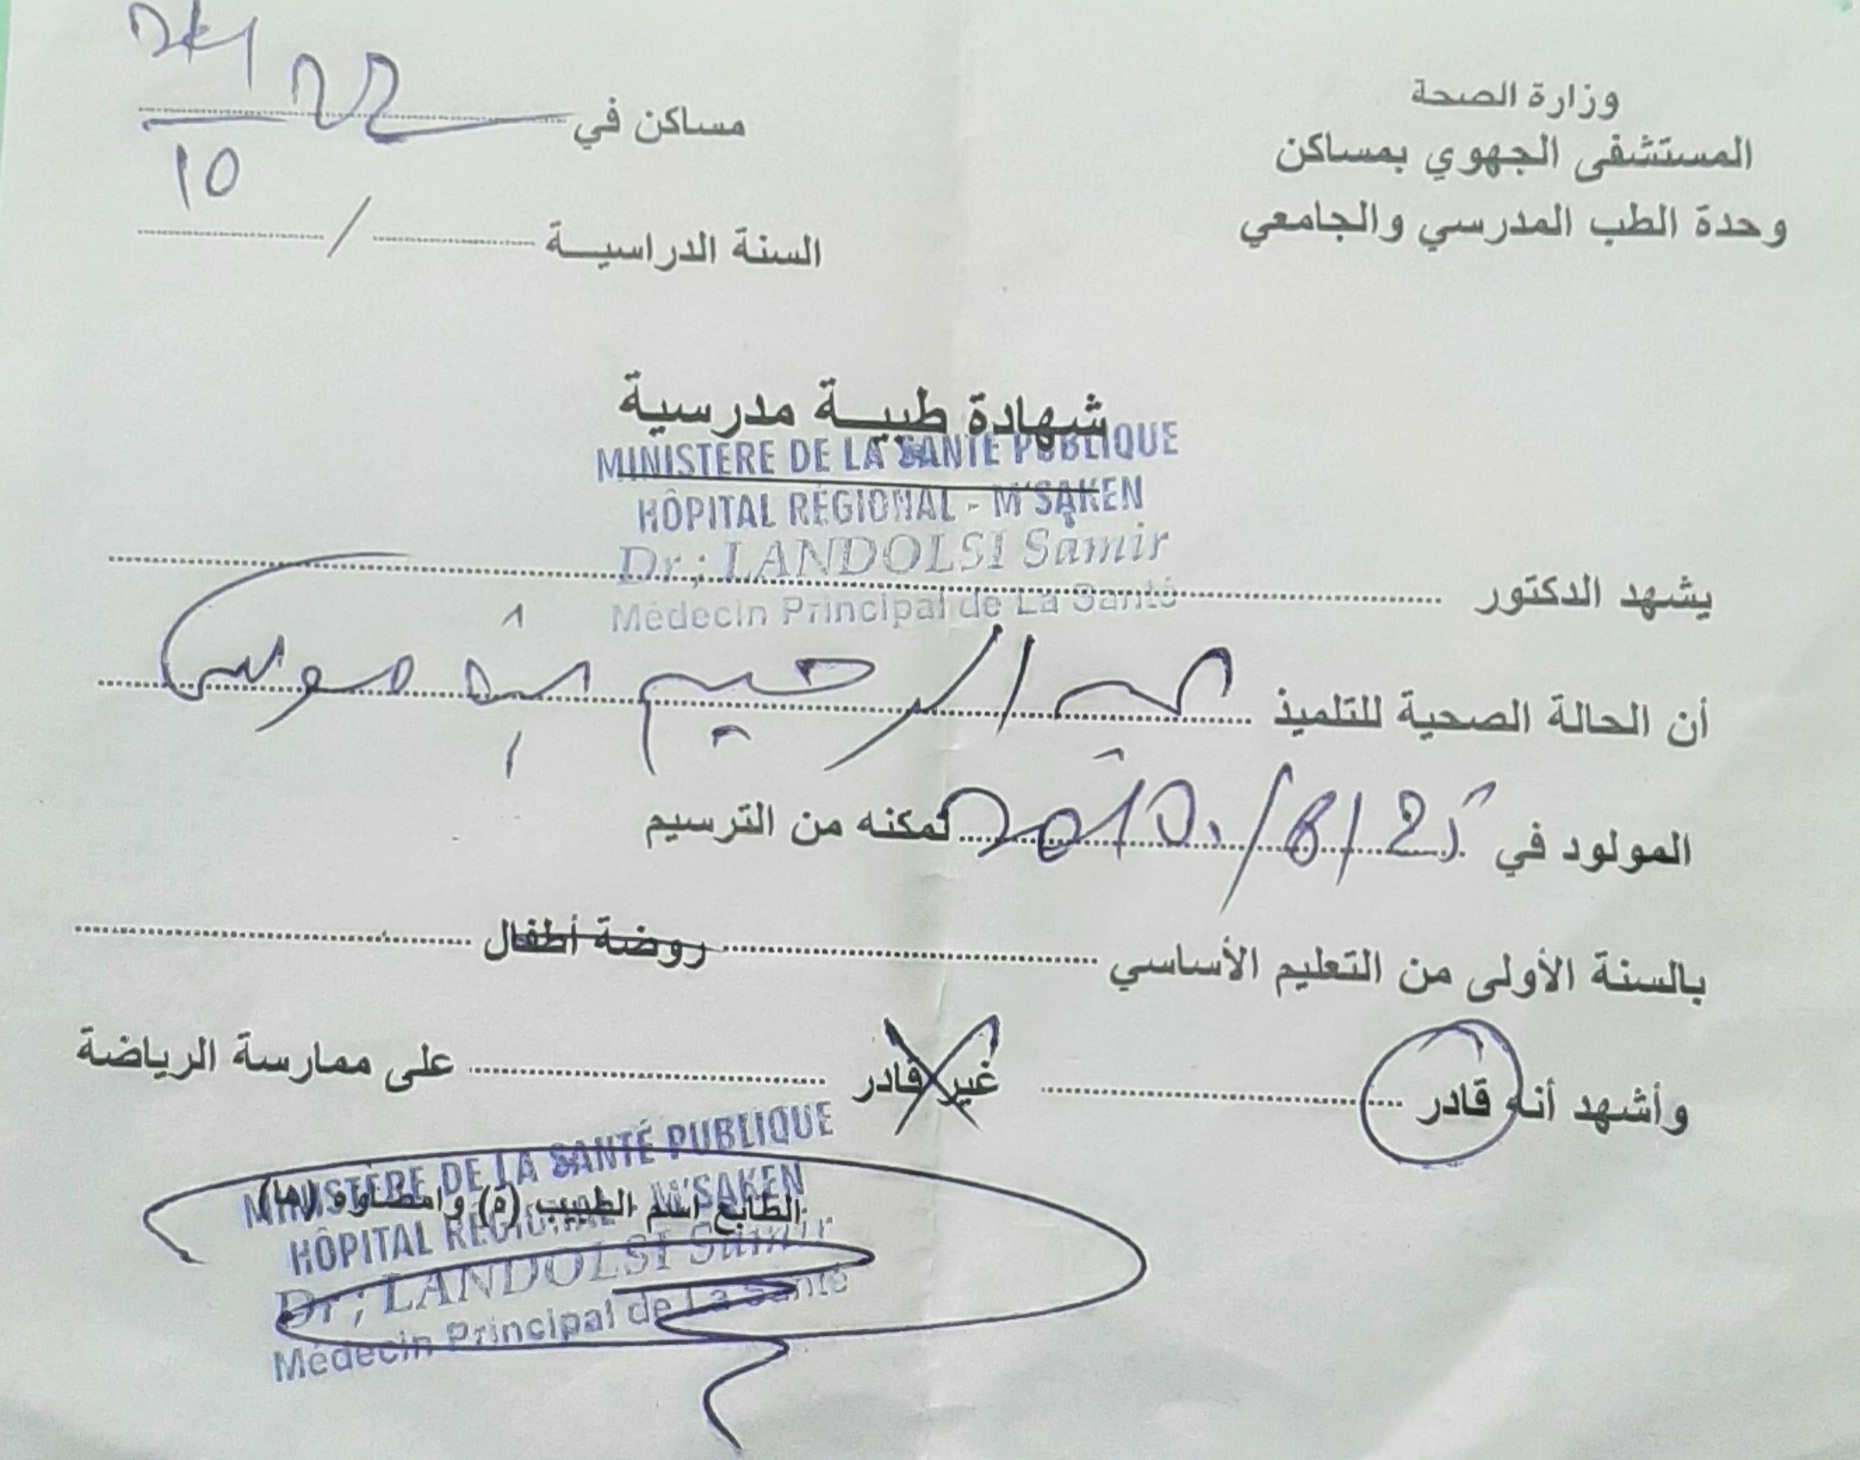 وزارة الصحة
المستشفى الجهوي بمساكن
وحدة الطب المدرسي والجامعي
مساكن في
10
السنة الدراسيــة /
شهادة طبيــة مدرسية
MINISTÈRE DE LA SANTÉ PUBLIQUE
HÔPITAL RÉGIONAL - M'SAKEN
Dr; LANDOLSI Samir
Médecin Principal de La Santé
يشهد الدكتور
أن الحالة الصحية للتلميذ عبد الرحيم بن موسى
المولود في 25/6/2010 تمكنه من الترسيم
بالسنة الأولى من التعليم الأساسي روضة أطفال
وأشهد أنه قادر غير قادر على ممارسة الرياضة
الطابع اسم الطبيب (ة) وامضاؤه (ها)
MINISTÈRE DE LA SANTÉ PUBLIQUE
HÔPITAL RÉGIONAL - M'SAKEN
Dr; LANDOLSI Samir
Médecin Principal de La Santé